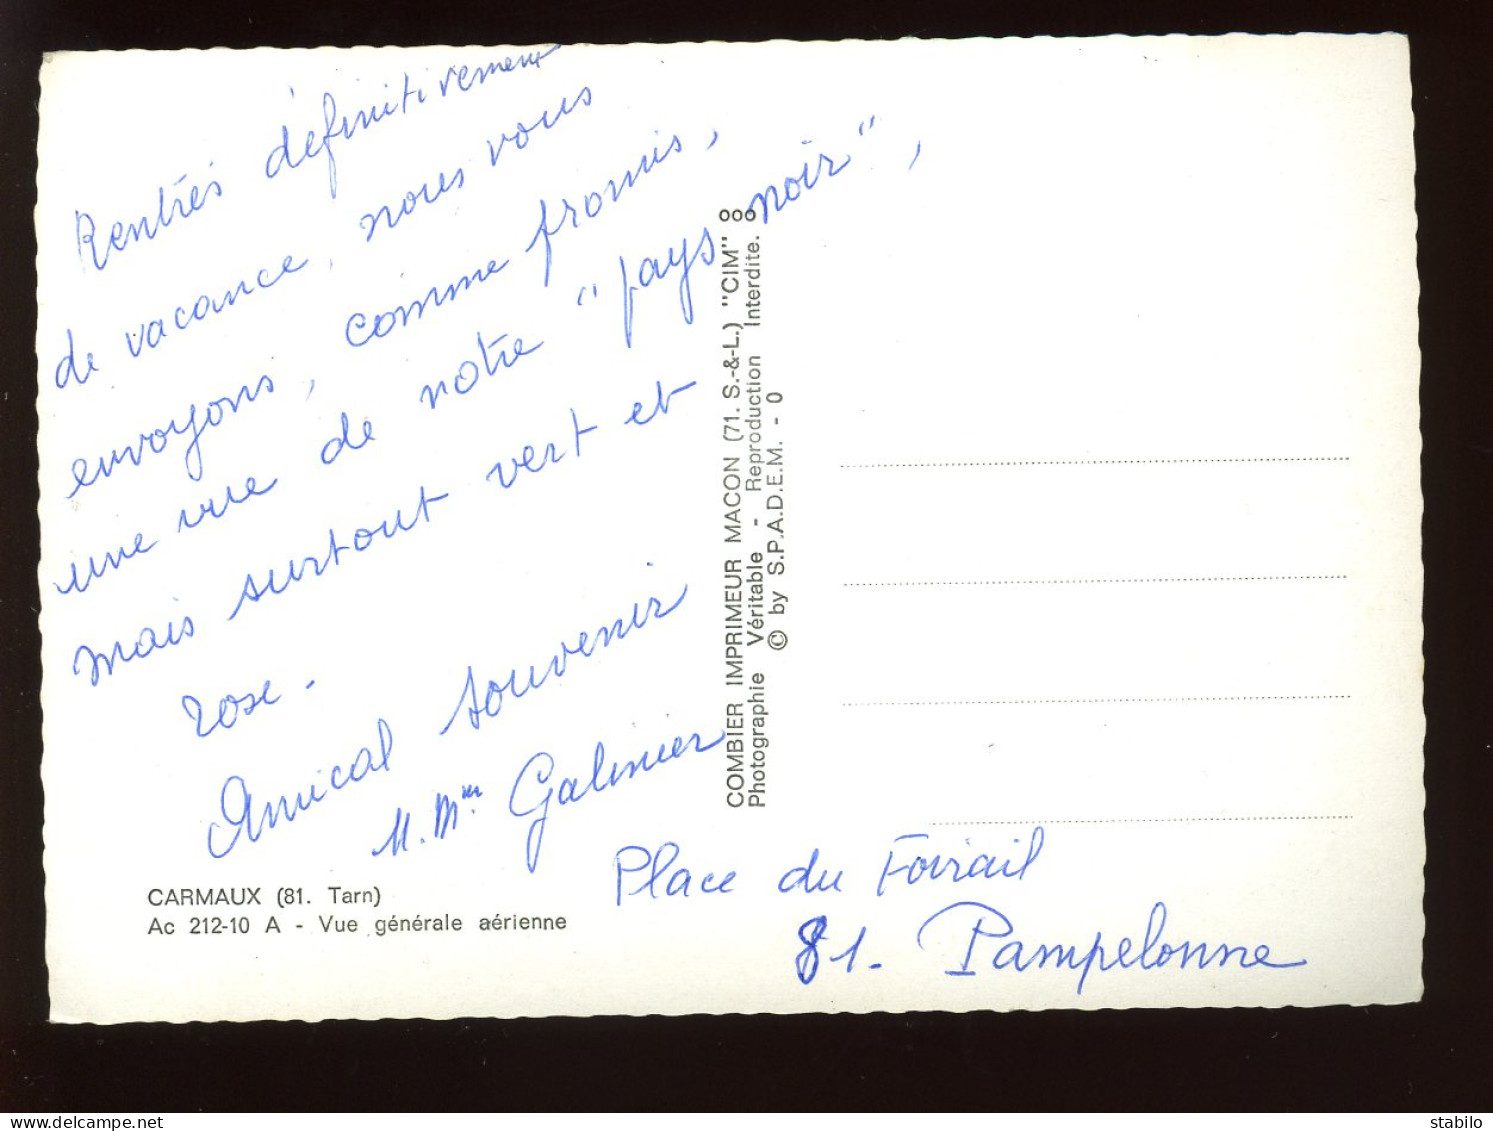 Rentrés définitivement
de vacance, nous vous
envoyons, comme promis,
une vue de notre "pays noir",
mais surtout vert et
rose.
Amical souvenir
M. Mme Galinier
Place du Foirail
81. Pampelonne
CARMAUX (81. Tarn)
Ac 212-10 A - Vue générale aérienne
COMBIER IMPRIMEUR MACON (71. S.-&-L.) "CIM" ooo
Photographie Véritable - Reproduction Interdite.
© by S.P.A.D.E.M. - 0
stabilo